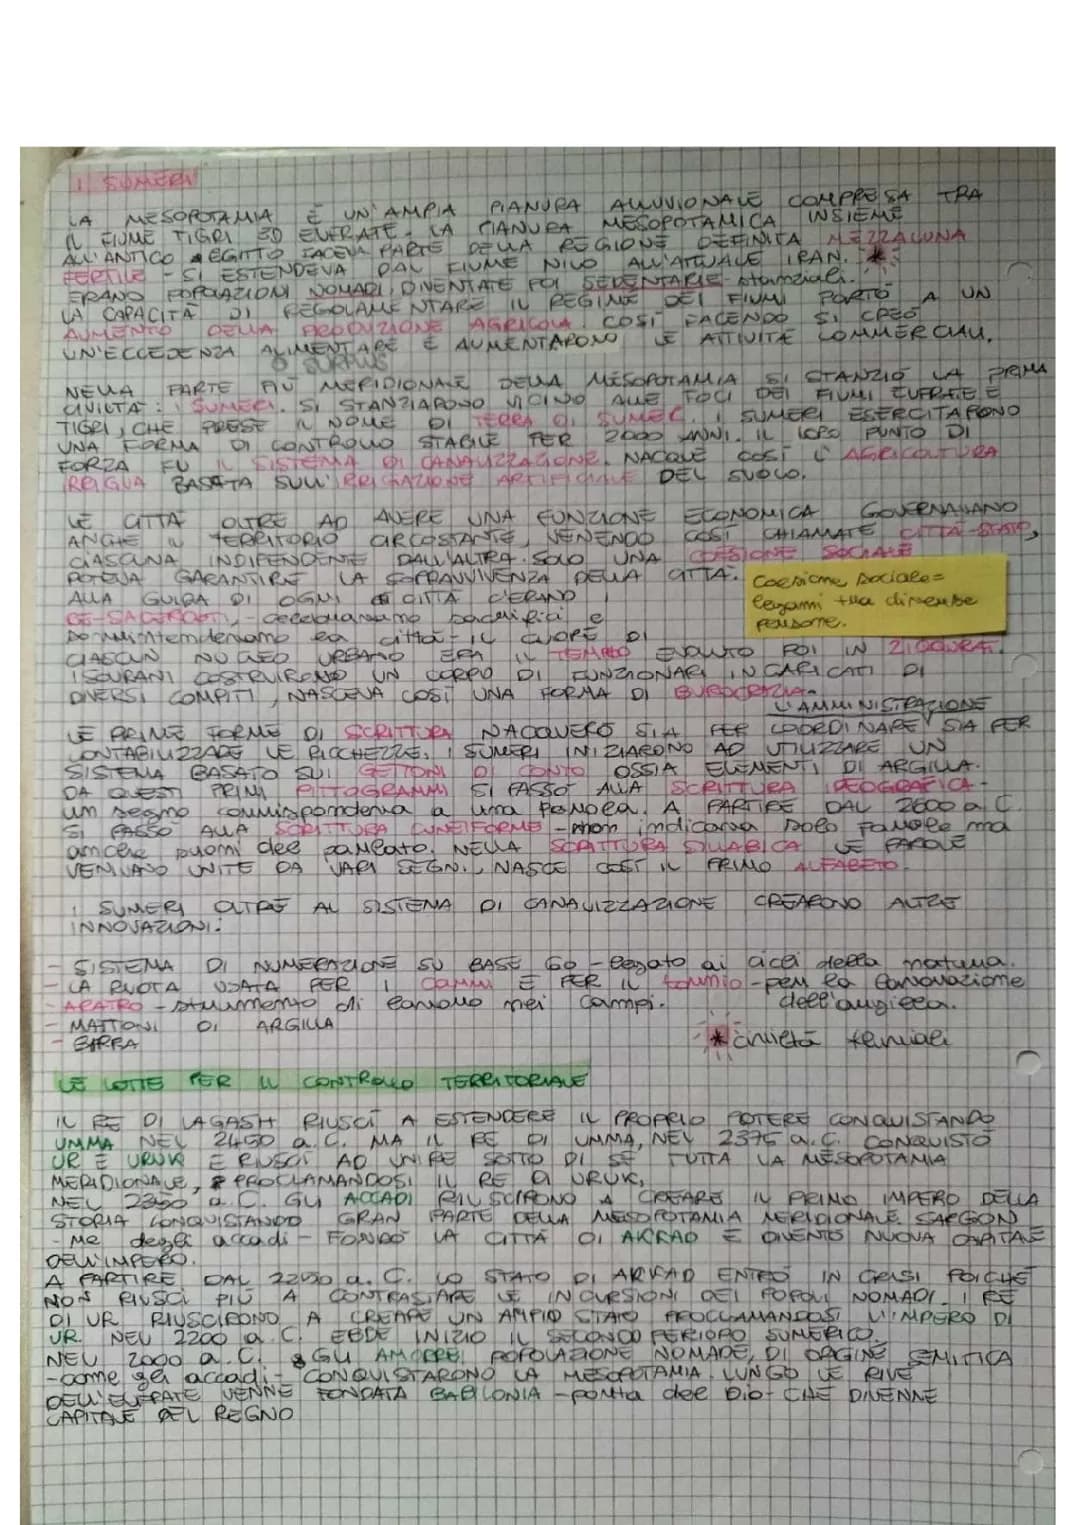 I SUMERI
LA MESOPOTAMIA È UN'AMPIA PIANURA ALLUVIONALE COMPRESA TRA
IL FIUME TIGRI ED EUFRATE. LA PIANURA MESOPOTAMICA INSIEME
ALL'ANTICO EGITTO FACEVA PARTE DELLA REGIONE DEFINITA MEZZALUNA
FERTILE - SI ESTENDEVA DAL FIUME NILO ALL'ATTUALE IRAN. *
ERANO POPOLAZIONI NOMADI, DIVENTATE POI SEDENTARIE - stanziali.
LA CAPACITÀ DI REGOLAMENTARE IL REGIME DEI FIUMI PORTÒ A UN
AUMENTO DELLA PRODUZIONE AGRICOLA. COSÌ FACENDO SI CREÒ
UN'ECCEDENZA ALIMENTARE E AUMENTARONO LE ATTIVITÀ COMMERCIALI.
O SURPLUS
NELLA PARTE PIÙ MERIDIONALE DELLA MESOPOTAMIA SI STANZIÒ LA PRIMA
CIVILTÀ: I SUMERI. SI STANZIARONO VICINO ALLE FOCI DEI FIUMI EUFRATE E
TIGRI, CHE PRESE IL NOME DI TERRA DI SUMER. I SUMERI ESERCITARONO
UNA FORMA DI CONTROLLO STABILE PER 2000 ANNI. IL LORO PUNTO DI
FORZA FU IL SISTEMA DI CANALIZZAZIONE. NACQUE COSÌ L'AGRICOLTURA
IRRIGUA BASATA SULL'IRRIGAZIONE ARTIFICIALE DEL SUOLO.
LE CITTÀ OLTRE AD AVERE UNA FUNZIONE ECONOMICA GOVERNAVANO
ANCHE IL TERRITORIO CIRCOSTANTE, VENENDO COSÌ CHIAMATE CITTÀ-STATO,
CIASCUNA INDIPENDENTE DALL'ALTRA. SOLO UNA COESIONE SOCIALE
POTEVA GARANTIRE LA SOPRAVVIVENZA DELLA CITTÀ.
ALLA GUIDA DI OGNI CITTÀ C'ERANO I
RE-SACERDOTI, - celebravano sacrifici e
sovrintendevano la città - IL CUORE DI
Coesione sociale=
legami tra diverse
persone.
CIASCUN NUCLEO URBANO ERA IL TEMPIO EVOLUTO POI IN ZIGGURAT.
I SOVRANI COSTRUIRONO UN CORPO DI FUNZIONARI INCARICATI DI
DIVERSI COMPITI, NASCEVA COSÌ UNA FORMA DI BUROCRAZIA.
L'AMMINISTRAZIONE
LE PRIME FORME DI SCRITTURA NACQUERO SIA PER COORDINARE SIA PER
CONTABILIZZARE LE RICCHEZZE. I SUMERI INIZIARONO AD UTILIZZARE UN
SISTEMA BASATO SUI GETTONI DI CONTO OSSIA ELEMENTI DI ARGILLA.
DA QUESTI PRIMI PITTOGRAMMI SI PASSÒ ALLA SCRITTURA IDEOGRAFICA -
un segno corrispondeva a una parola. A PARTIRE DAL 2600 a.C.
SI PASSÒ ALLA SCRITTURA CUNEIFORME - non indicava solo parole ma
anche suoni del parlato. NELLA SCRITTURA SILLABICA LE PAROLE
VENIVANO UNITE DA VARI SEGNI, NASCE COSÌ IL PRIMO ALFABETO.
I SUMERI OLTRE AL SISTEMA DI CANALIZZAZIONE CREARONO ALTRE
INNOVAZIONI:
- SISTEMA DI NUMERAZIONE SU BASE 60 - legato ai cicli della natura.
- LA RUOTA USATA PER I CARRI E PER IL tornio - per la lavorazione
dell'argilla.
- ARATRO - strumento di lavoro nei campi.
- MATTONI DI ARGILLA
- BIRRA
* civiltà fluviali
LE LOTTE PER IL CONTROLLO TERRITORIALE
IL RE DI LAGASH RIUSCÌ A ESTENDERE IL PROPRIO POTERE CONQUISTANDO
UMMA NEL 2450 a.C. MA IL RE DI UMMA, NEL 2375 a.C. CONQUISTÒ
UR E URUK E RIUSCÌ AD UNIRE SOTTO DI SÉ TUTTA LA MESOPOTAMIA
MERIDIONALE, PROCLAMANDOSI IL RE DI URUK.
NEL 2350 a.C. GLI ACCADI RIUSCIRONO A CREARE IL PRIMO IMPERO DELLA
STORIA CONQUISTANDO GRAN PARTE DELLA MESOPOTAMIA MERIDIONALE. SARGON
- re degli accadi - FONDÒ LA CITTÀ DI AKKAD E DIVENTÒ NUOVA CAPITALE
DELL'IMPERO.
A PARTIRE DAL a.C. LO STATO DI AKKAD ENTRÒ IN CRISI POICHÉ
NON RIUSCÌ PIÙ A CONTRASTARE LE INCURSIONI DEI POPOLI NOMADI. I RE
DI UR RIUSCIRONO A CREARE UN AMPIO STATO PROCLAMANDOSI L'IMPERO DI
UR. NEL 2200 a.C. EBBE INIZIO IL SECONDO PERIODO SUMERICO.
NEL 2000 a.C. GLI AMORREI POPOLAZIONE NOMADE, DI ORIGINE SEMITICA
- come gli accadi - CONQUISTARONO LA MESOPOTAMIA. LUNGO LE RIVE
DELL'EUFRATE VENNE FONDATA BABILONIA - porta del Dio - CHE DIVENNE
CAPITALE DEL REGNO